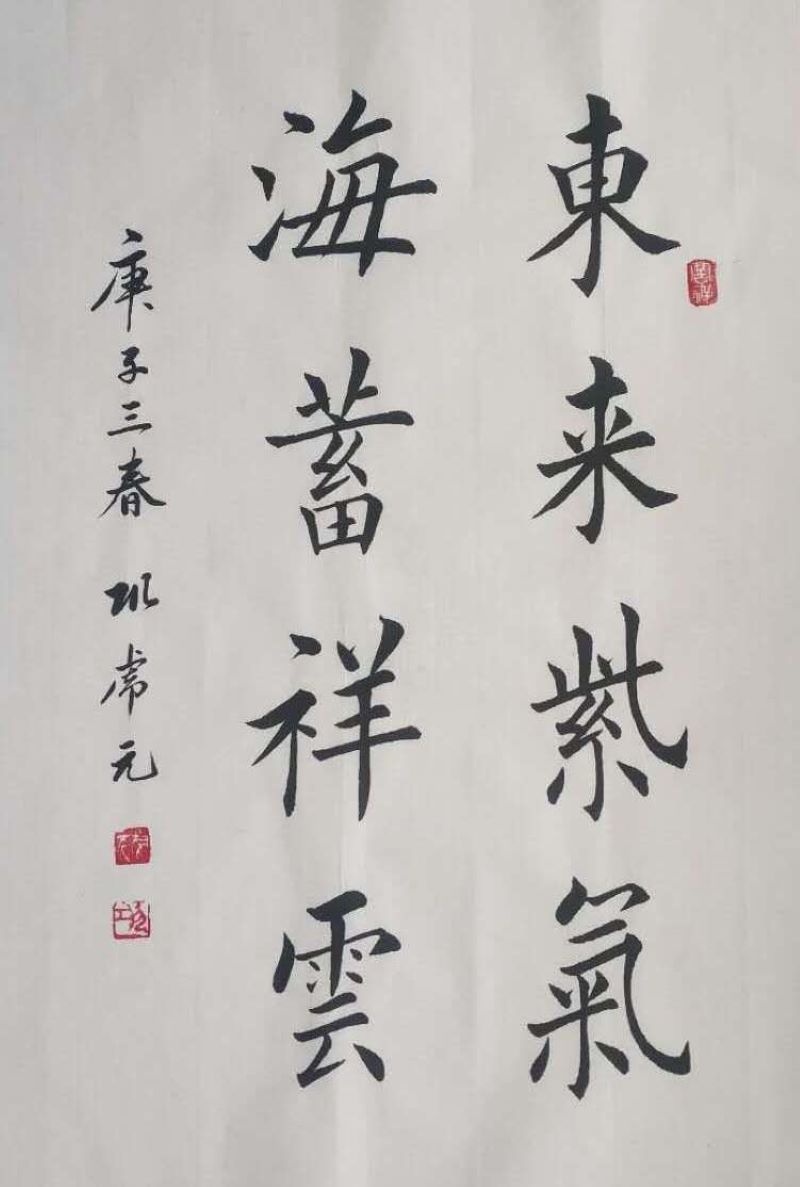 東来紫氣
海蓄祥雲
庚子三春